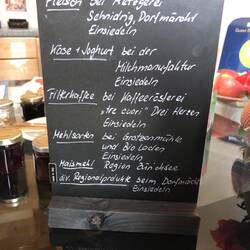 Fleisch bei Metzgerei
Schnidrig, Dorfmärcht
Einsiedeln
Käse + Joghurt bei der
Milchmanufaktur
Einsiedeln
Filterkaffee bei Kaffeerösterei
"tre cuori" Drei Herzen
Einsiedeln
Mehlsorten bei
und Bio Laden
Einsiedeln
Maismehl Region Zürichsee
div. Regionalprodukte beim Dorfmärcht
Einsiedeln